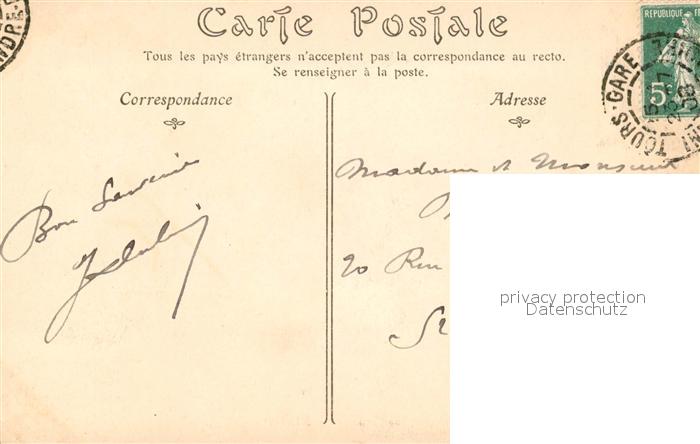 Carte Postale
Tous les pays étrangers n'acceptent pas la correspondance au recto.
Se renseigner à la poste.
Correspondance
Adresse
RÉPUBLIQUE FR
5c
TOURS-GARE
NDRE
Bon Souvenir
Madame et Monsieur
20 Rue
privacy protection
Datenschutz